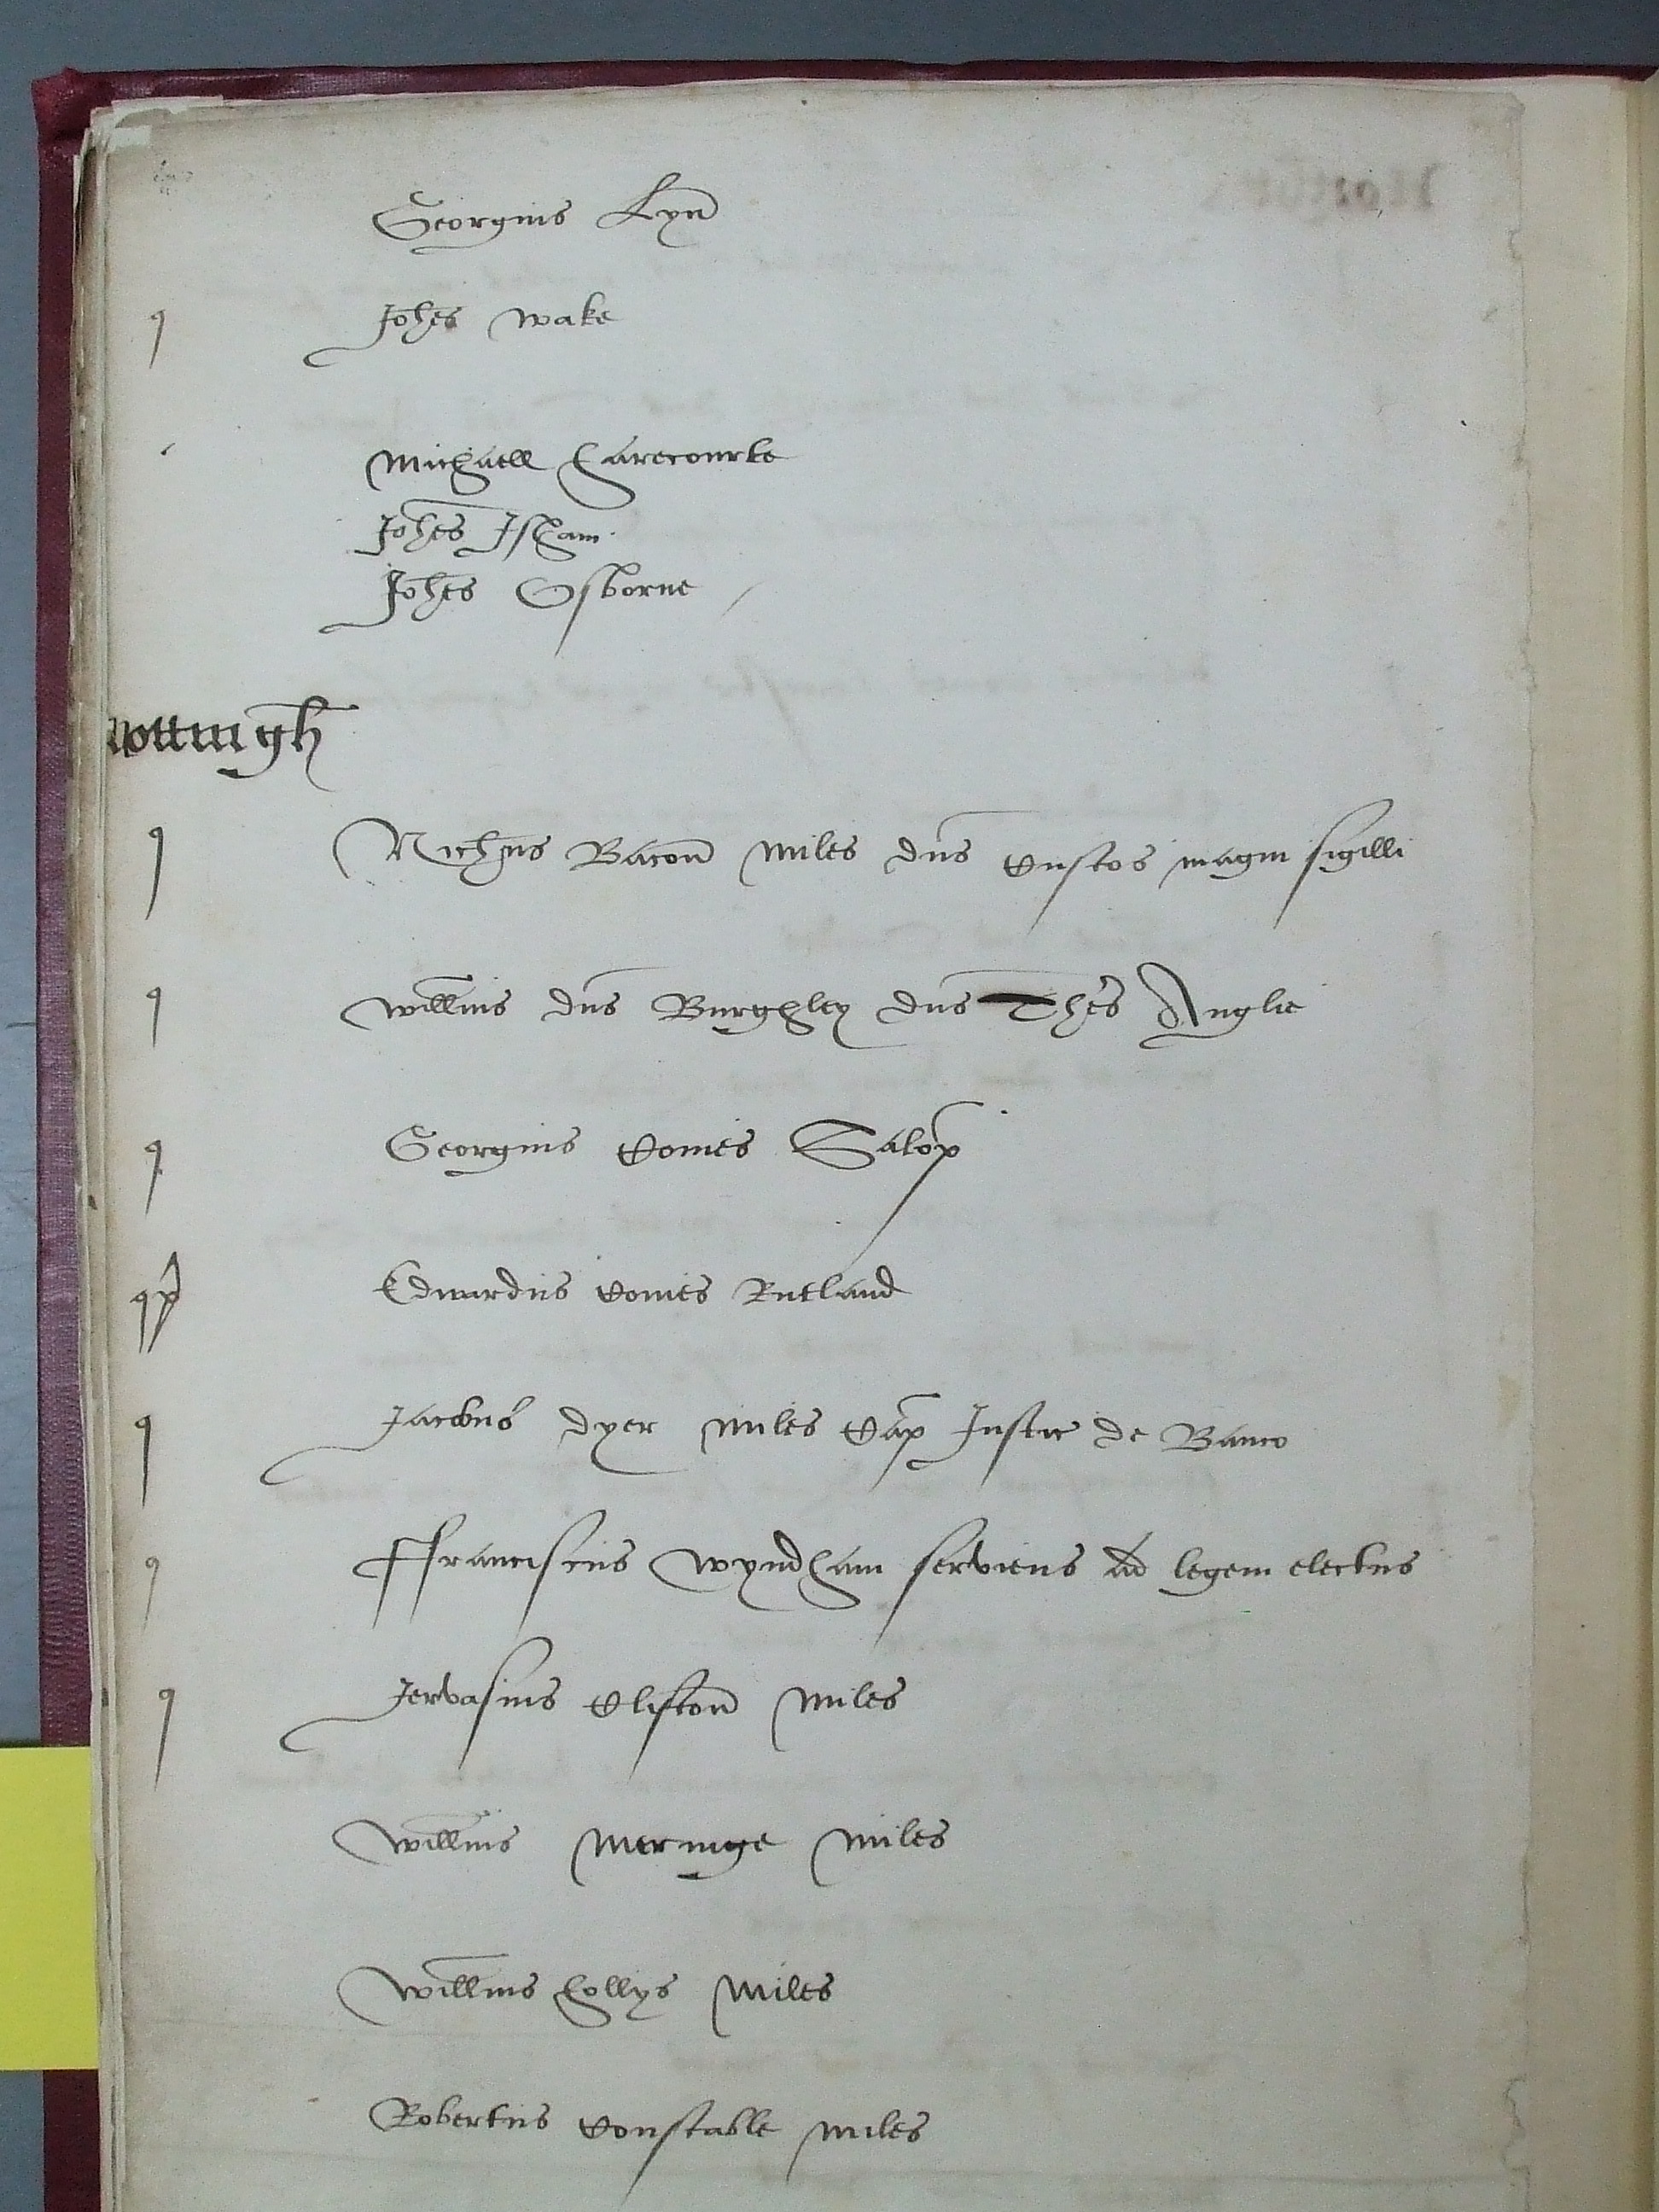 Georgius Lyn̄
q Joh̄es wake
Michaell Harecourte
Joh̄es Isham
Joh̄es Osborne
Nottingh̄
q Nich̄us Bacon̄ Miles dn̄s Custos magni sigilli
q Will̄ms dn̄s Burghley dn̄s Thes̄ Anglie
q Georgius Comes Salop̄
q p̄ Edwardus Comes Rutland
q Jacobus dyer Miles Cap̄ Justic de Banco
q Ffranciscus Wyndham serviens ad legem electus
q Jervasius Clifton̄ Miles
Will̄ms Meringe Miles
Will̄ms Hollys Miles
Robertus Constable Miles